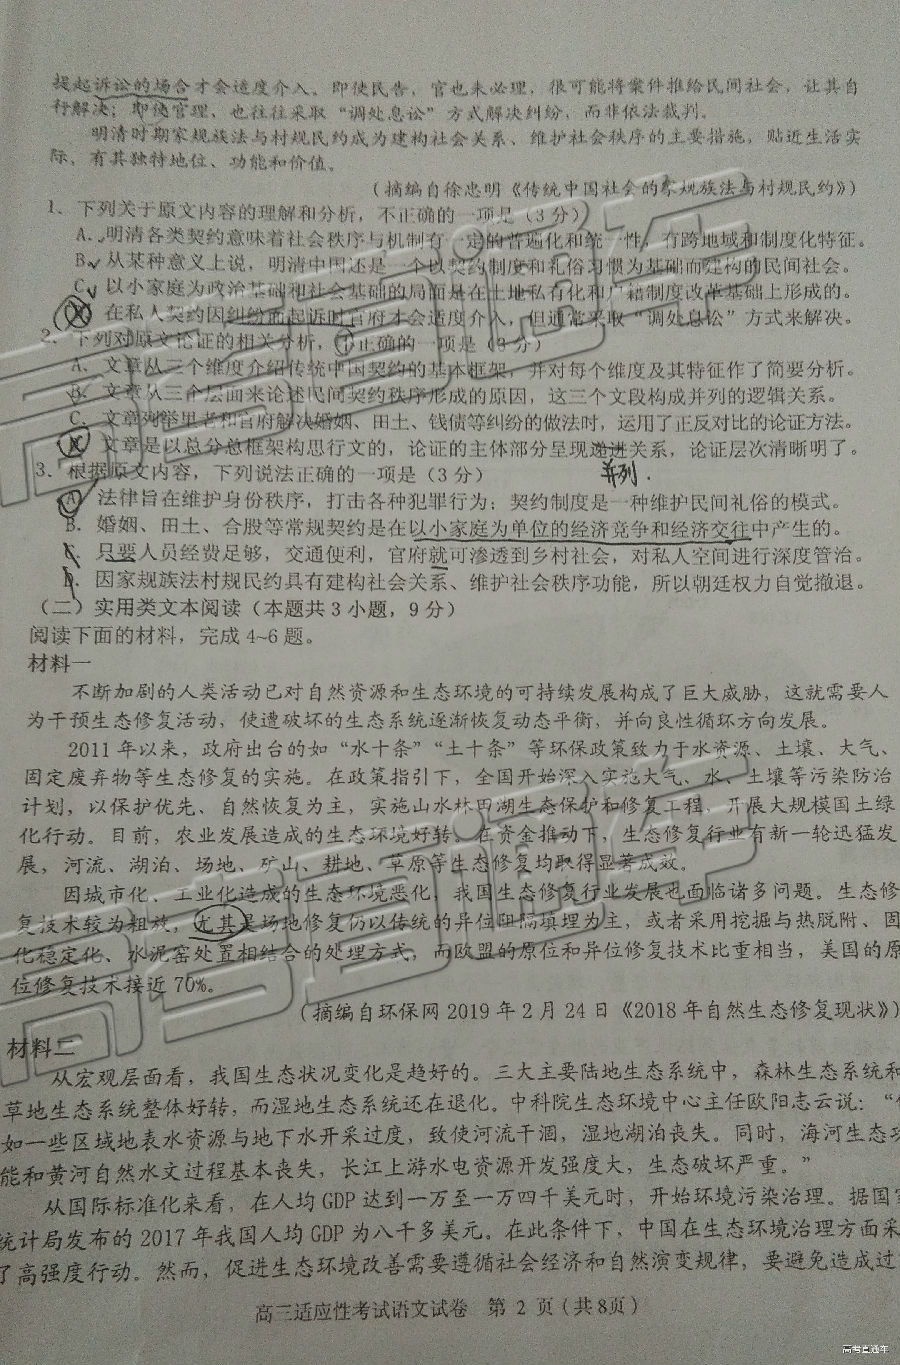 提起诉讼的场合才会适度介入。即使民告，官也未必理，很可能将案件推给民间社会，让其自
行解决；即使官理、也往往采取“调处息讼”方式解决纠纷，而非依法裁判。
明清时期家规族法与村规民约成为建构社会关系、维护社会秩序的主要措施，贴近生活实
际，有其独特地位、功能和价值。
（摘编自徐忠明《传统中国社会的家规族法与村规民约》）
1、下列关于原文内容的理解和分析，不正确的一项是（3分）
A. 明清各类契约意味着社会秩序与机制有一定的普遍化和统一性，有跨地域和制度化特征。
B. 从某种意义上说，明清中国还是一个以契约制度和礼俗习惯为基础而建构的民间社会。
C. 以小家庭为政治基础和社会基础的局面是在土地私有化和户籍制度改革基础上形成的。
在私人契约因纠纷而起诉时官府才会适度介入，但通常采取“调处息讼”方式来解决。
2、下列对原文论证的相关分析，不正确的一项是（3分）
A. 文章从三个维度介绍传统中国契约的基本框架，并对每个维度及其特征作了简要分析。
B. 文章从三个层面来论述民间契约秩序形成的原因，这三个文段构成并列的逻辑关系。
C. 文章列举里老和官府解决婚姻、田土、钱债等纠纷的做法时，运用了正反对比的论证方法。
文章是以总分总框架构思行文的，论证的主体部分呈现递进关系，论证层次清晰明了。
并列.
3、根据原文内容，下列说法正确的一项是（3分）
A 法律旨在维护身份秩序，打击各种犯罪行为；契约制度是一种维护民间礼俗的模式。
B. 婚姻、田土、合股等常规契约是在以小家庭为单位的经济竞争和经济交往中产生的。
C. 只要人员经费足够，交通便利，官府就可渗透到乡村社会，对私人空间进行深度管治。
D. 因家规族法村规民约具有建构社会关系、维护社会秩序功能，所以朝廷权力自觉撤退。
（二）实用类文本阅读（本题共3小题，9分）
阅读下面的材料，完成4~6题。
材料一
不断加剧的人类活动已对自然资源和生态环境的可持续发展构成了巨大威胁，这就需要人
为干预生态修复活动，使遭破坏的生态系统逐渐恢复动态平衡，并向良性循环方向发展。
2011年以来，政府出台的如“水十条”“土十条”等环保政策致力于水资源、土壤、大气、
固定废弃物等生态修复的实施。在政策指引下，全国开始深入实施大气、水、土壤等污染防治
计划，以保护优先、自然恢复为主，实施山水林田湖生态保护和修复工程，开展大规模国土绿
化行动。目前，农业发展造成的生态环境好转。在资金推动下，生态修复行业有新一轮迅猛发
展，河流、湖泊、场地、矿山、耕地、草原等生态修复均取得显著成效。
因城市化、工业化造成的生态环境恶化，我国生态修复行业发展也面临诸多问题。生态修
复技术较为粗放，尤其是场地修复仍以传统的异位阻隔填埋为主，或者采用挖掘与热脱附、固
化稳定化、水泥窑处置相结合的处理方式，而欧盟的原位和异位修复技术比重相当，美国的原
位修复技术接近70%。
（摘编自环保网2019年2月24日《2018年自然生态修复现状》）
材料二
从宏观层面看，我国生态状况变化是趋好的。三大主要陆地生态系统中，森林生态系统和
草地生态系统整体好转，而湿地生态系统还在退化。中科院生态环境中心主任欧阳志云说：“
如一些区域地表水资源与地下水开采过度，致使河流干涸，湿地湖泊丧失。同时，海河生态功
能和黄河自然水文过程基本丧失，长江上游水电资源开发强度大，生态破坏严重。”
从国际标准化来看，在人均GDP达到一万至一万四千美元时，开始环境污染治理。据国家
统计局发布的2017年我国人均GDP为八千多美元。在此条件下，中国在生态环境治理方面采
了高强度行动。然而，促进生态环境改善需要遵循社会经济和自然演变规律，要避免造成过
高三适应性考试语文试卷 第2页（共8页）
高考直通车